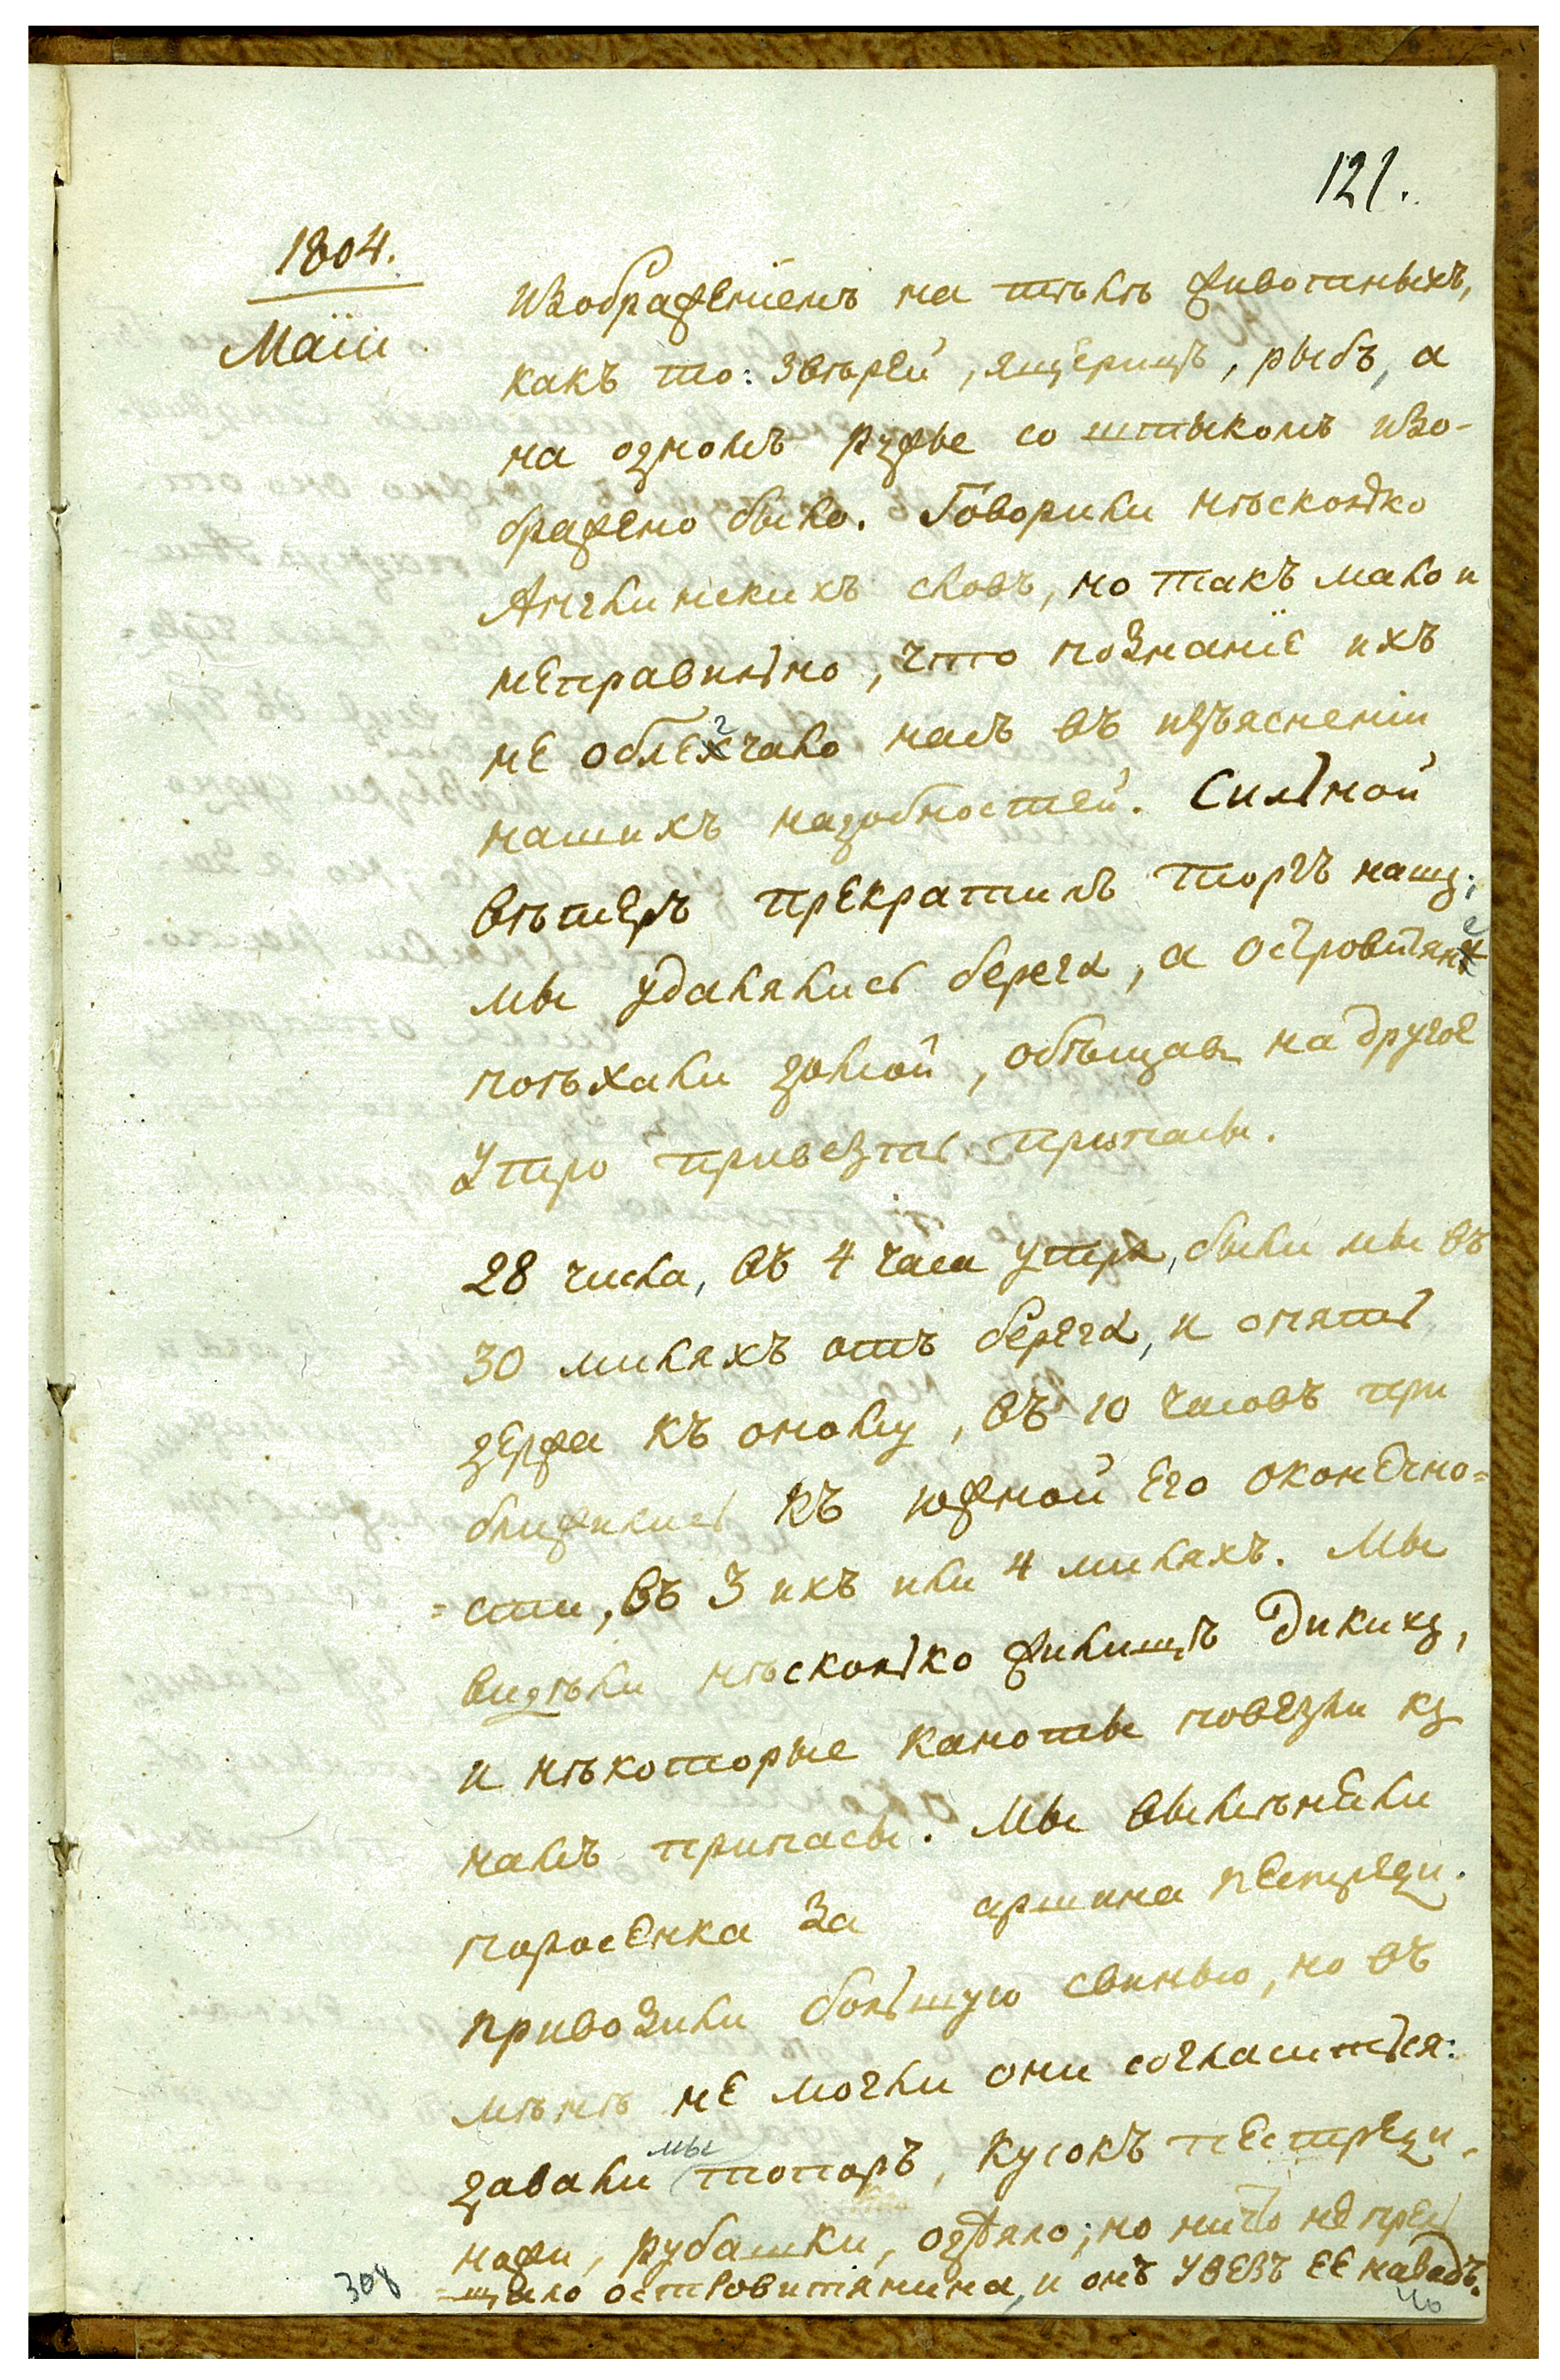 121.
1804.
Маій
изображеніемъ на тѣлѣ животныхъ,
какъ то: звѣрей, ящерицъ, рыбъ, а
на одномъ ружье со штыкомъ изо-
бражено было. Говорили нѣсколько
Англинскихъ словъ, но такъ мало и
неправильно, что познаніе ихъ
не облегчало насъ въ изъясненіи
нашихъ надобностей. Сильной
вѣтеръ прекратилъ торгъ нашъ;
мы удалялись берега, а островитяне
поѣхали домой, обѣщавъ на другое
утро привезть припасы.
28 числа, въ 4 часа утра, были мы въ
30 миляхъ отъ берега, и опять
держа къ оному, въ 10 часовъ при
ближились къ южной его оконечно=
=сти, въ 3 ихъ или 4 миляхъ. Мы
видѣли нѣсколько жилищъ дикихъ,
и нѣкоторые каноты повезли къ
намъ припасы. Мы вымѣняли
поросенка за аршина пестреди.
привозили большую свинью, но въ
мѣнѣ не могли они согласиться:
давали мы топоръ, кусокъ пестреди,
ножи, рубашки, одѣяло; но ничто не прель
=щало островитянина, и онъ увезъ ее назадъ.
308